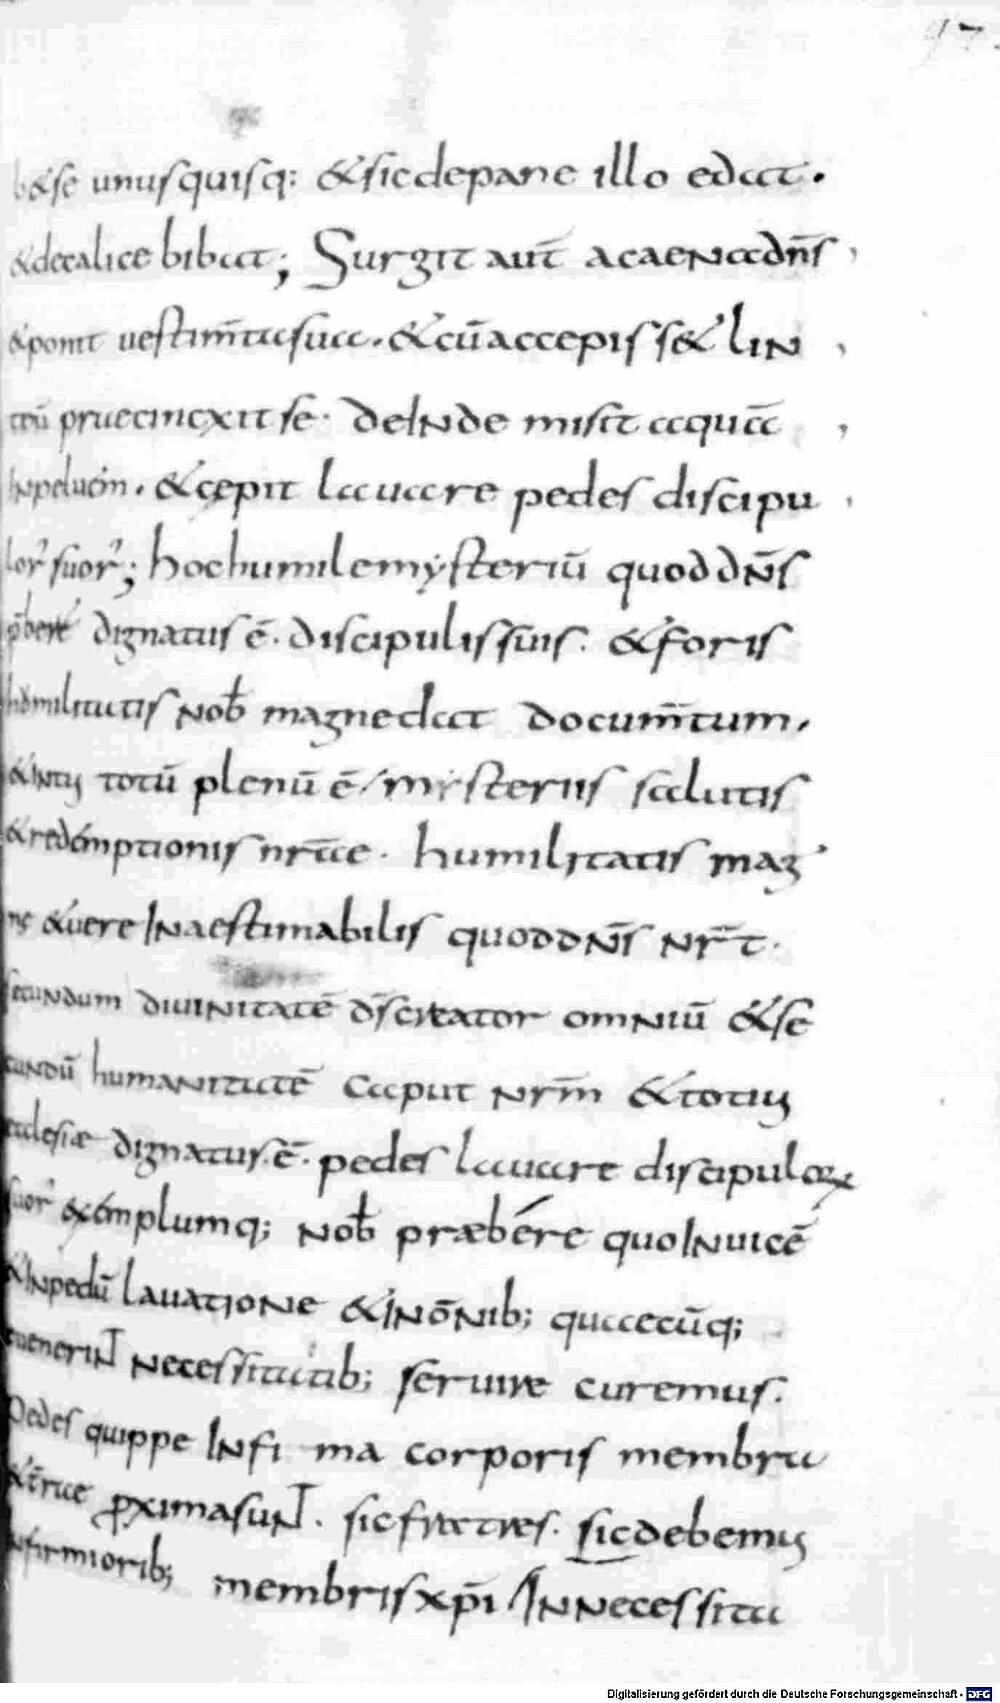 97.
b&se unusquisq: &sicdepane illo edat.
&decalice bibat; Surgit aut̄ acaenadn̄s
&ponit uestim̄tasua. &cū accepiss& lin
teū praecinxit se. deinde misit aquā
inpeluem. &cepit lauare pedes discipu
lor suor; hochumilemysteriū quoddn̄s
p̄bere dignatus ē. discipulissuis. &foris
humilitatis nob̄ magnedat docum̄tum.
&intus totū plenū ē mysteriis salutis
&redemptionis nr̄ae. humilitatis mag
nę &uere inaestimabilis quoddn̄s nr̄t.
secundum diuinitatē ds̄creator omniū &se
cundū humanitatē caput nr̄m &totius
ecclesiæ dignatus.ē. pedes lauare discipulorx
suor &exemplumq; nob̄ præbere quoinuicē
&inpedū lauatione &inōnib; quaecūq;
euenerint necessitatib; seruire curemus.
Pedes quippe infi ma corporis membra
&terrae proximasunt. sicfratres. sicdebemus
infirmiorib; membrisxp̄i Innecessita
Digitalisierung gefördert durch die Deutsche Forschungsgemeinschaft - DFG